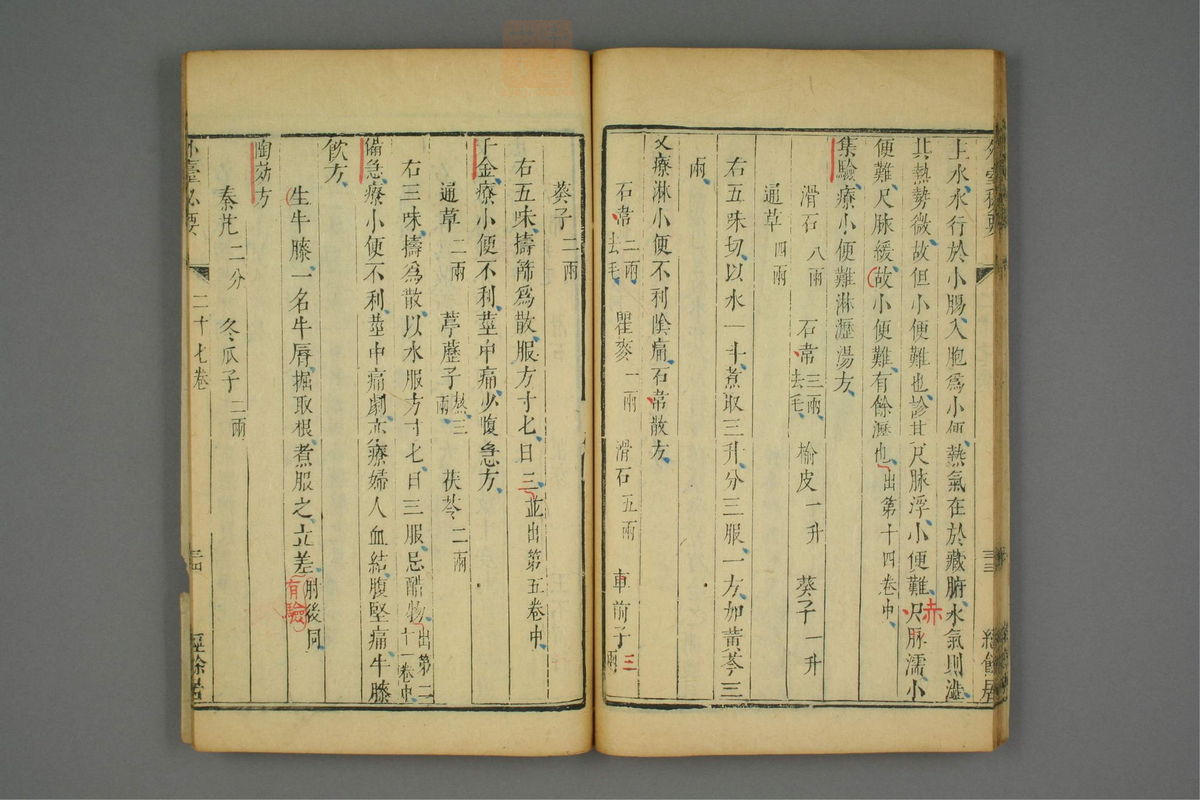 外臺秘要
三三
經餘居
上水水行於小腸入胞爲小便熱氣在於藏腑水氣則澁
其熱勢微故但小便難也診其尺脉浮小便難尺脉濡小
赤
便難尺脉緩故小便難有餘瀝也出第十四卷中
集驗療小便難淋瀝湯方
滑石八兩 石韋三兩去毛 榆皮一升 葵子一升
通草四兩
右五味切以水一斗煮取三升分三服一方加黃芩三
兩
又療淋小便不利陰痛石韋散方
石韋二兩去毛 瞿麥一兩 滑石五兩 車前子三兩
葵子二兩
右五味擣篩爲散服方寸匕日三並出第五卷中
千金療小便不利莖中痛少腹急方
通草二兩 葶藶子熬三兩 茯苓二兩
右三味擣爲散以水服方寸匕日三服忌酷物出第二十一卷中
備急療小便不利莖中痛劇亦療婦人血結腹堅痛牛膝
飲方
生牛膝一名牛脣掘取根煮服之立差肘後同
有驗
陶効方
秦艽二分 冬瓜子二兩
外臺必要
二十七卷
三四
經餘居